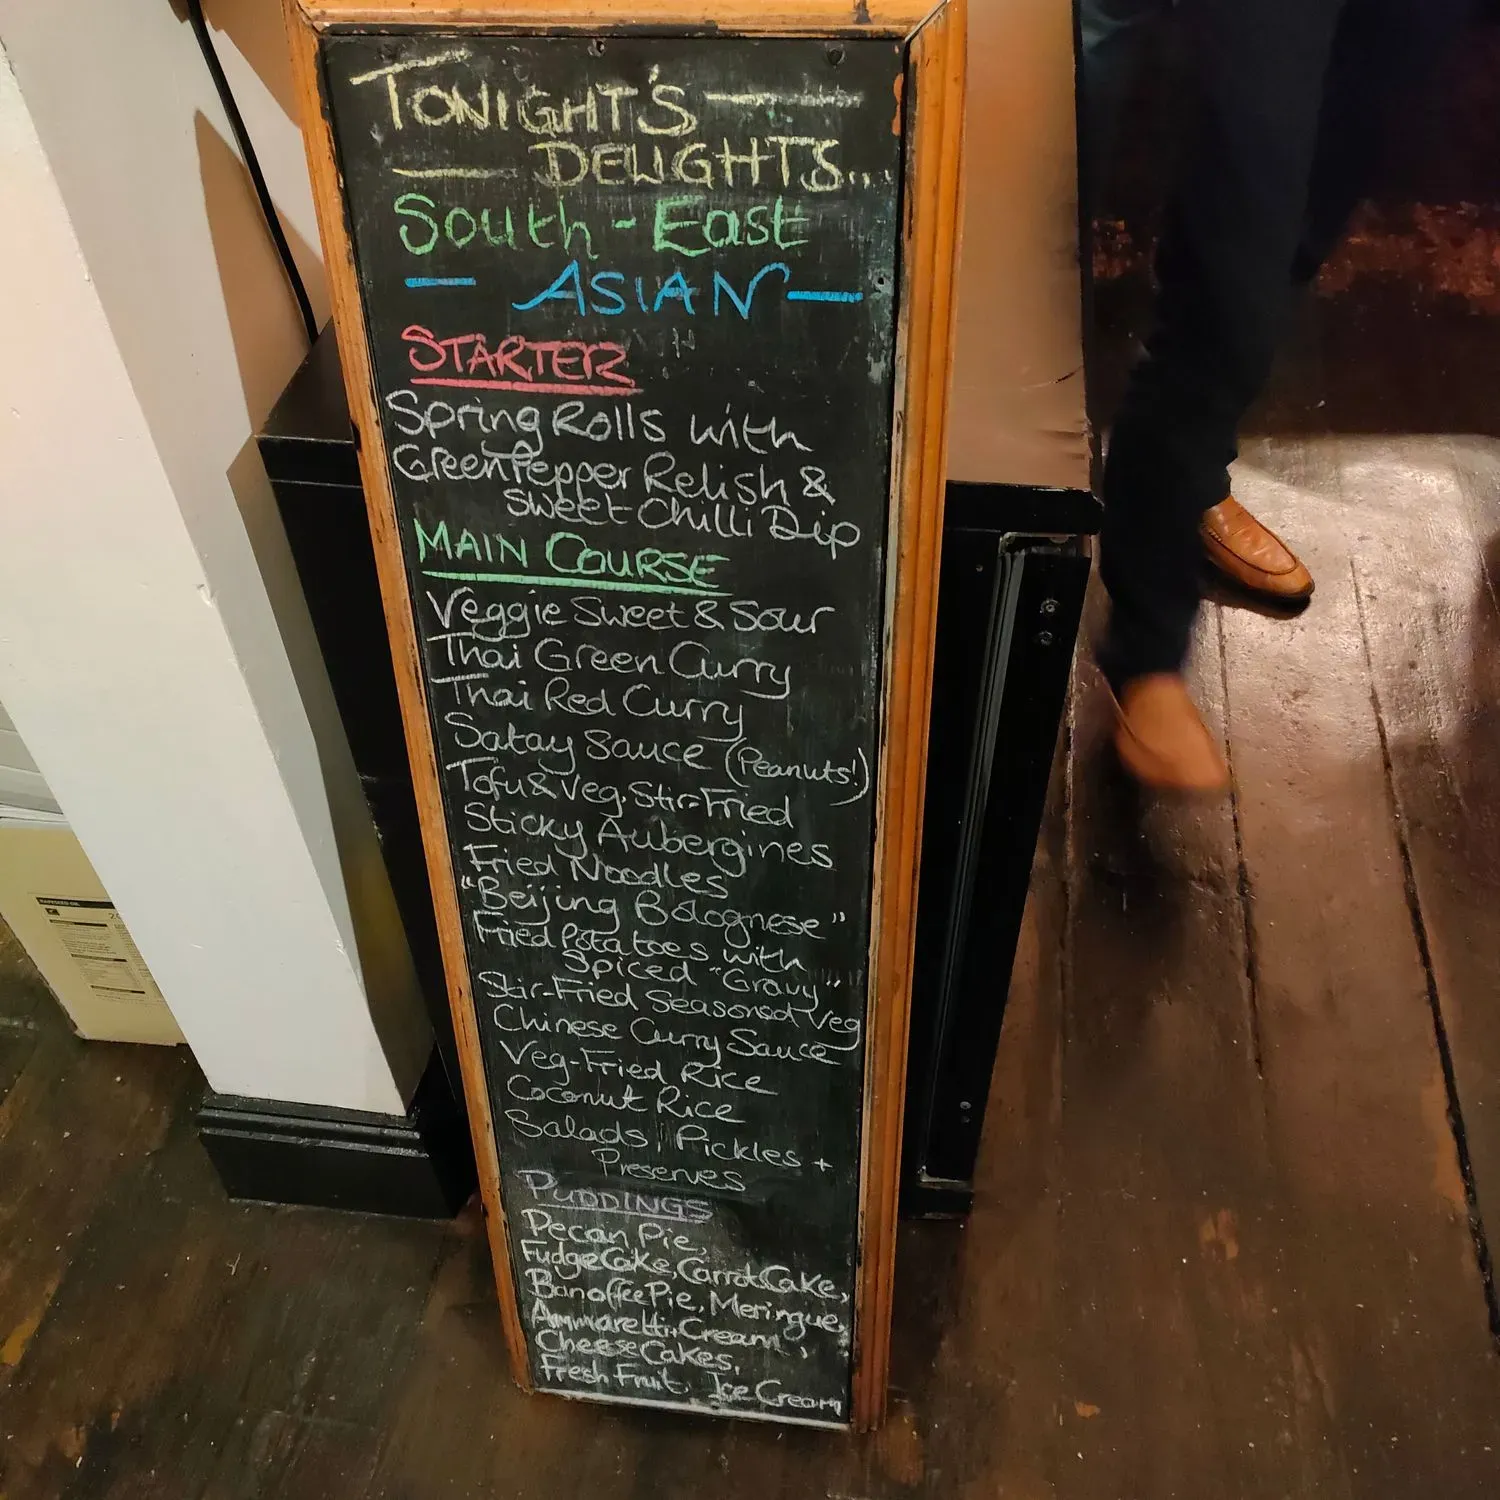 TONIGHT'S
DELIGHTS...
South-East
ASIAN
STARTER
Spring Rolls with
Green Pepper Relish &
Sweet Chilli Dip
MAIN COURSE
Veggie Sweet & Sour
Thai Green Curry
Thai Red Curry
Satay Sauce (Peanuts!)
Tofu & Veg. Stir-Fried
Sticky Aubergines
Fried Noodles
"Beijing Bolognese"
Fried Potatoes with
Spiced "Gravy"
Stir-Fried Seasoned Veg
Chinese Curry Sauce
Veg-Fried Rice
Coconut Rice
Salads, Pickles +
Preserves
PUDDINGS
Pecan Pie,
Fudge Cake, Carrot Cake,
Banoffee Pie, Meringue,
Ammaretti Cream,
Cheese Cakes,
Fresh Fruit, Ice Cream
RAPESEED OIL